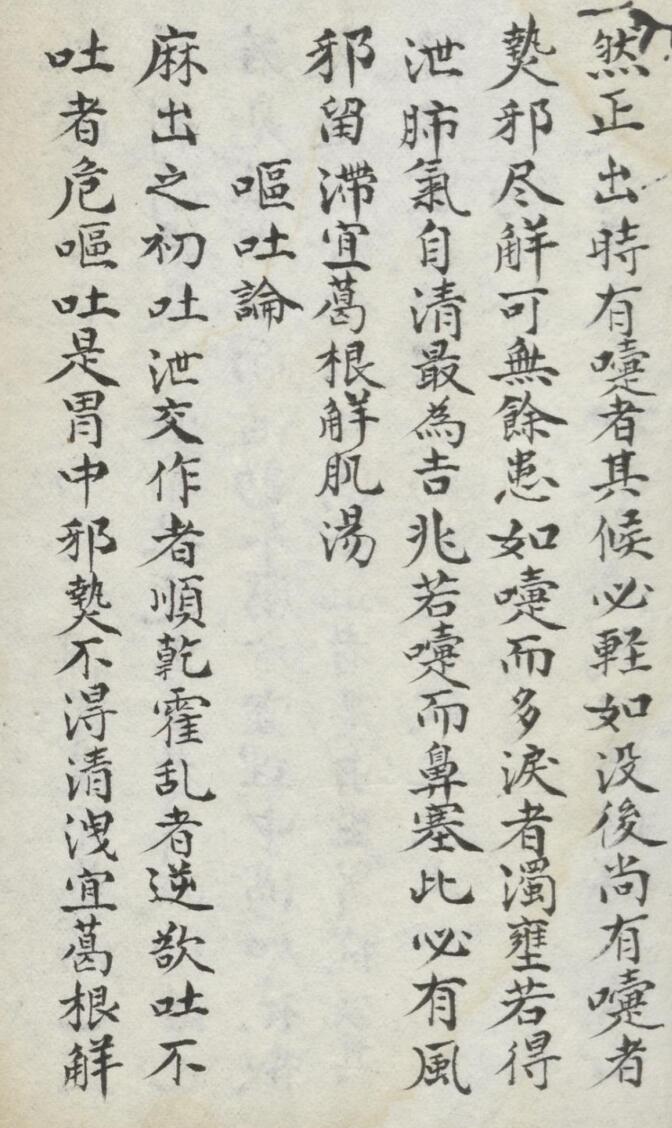 然正出時有嚏者其候必軽如没後尚有嚏者
熱邪尽解可無餘患如嚏而多淚者濁壅若得
泄肺氣自清最為吉兆若嚏而鼻塞比必有風
邪留滯宜葛根解肌湯
嘔吐論
麻出之初吐泄交作者順乾霍乱者逆欲吐不
吐者危嘔吐是胃中邪熱不得清洩宜葛根解